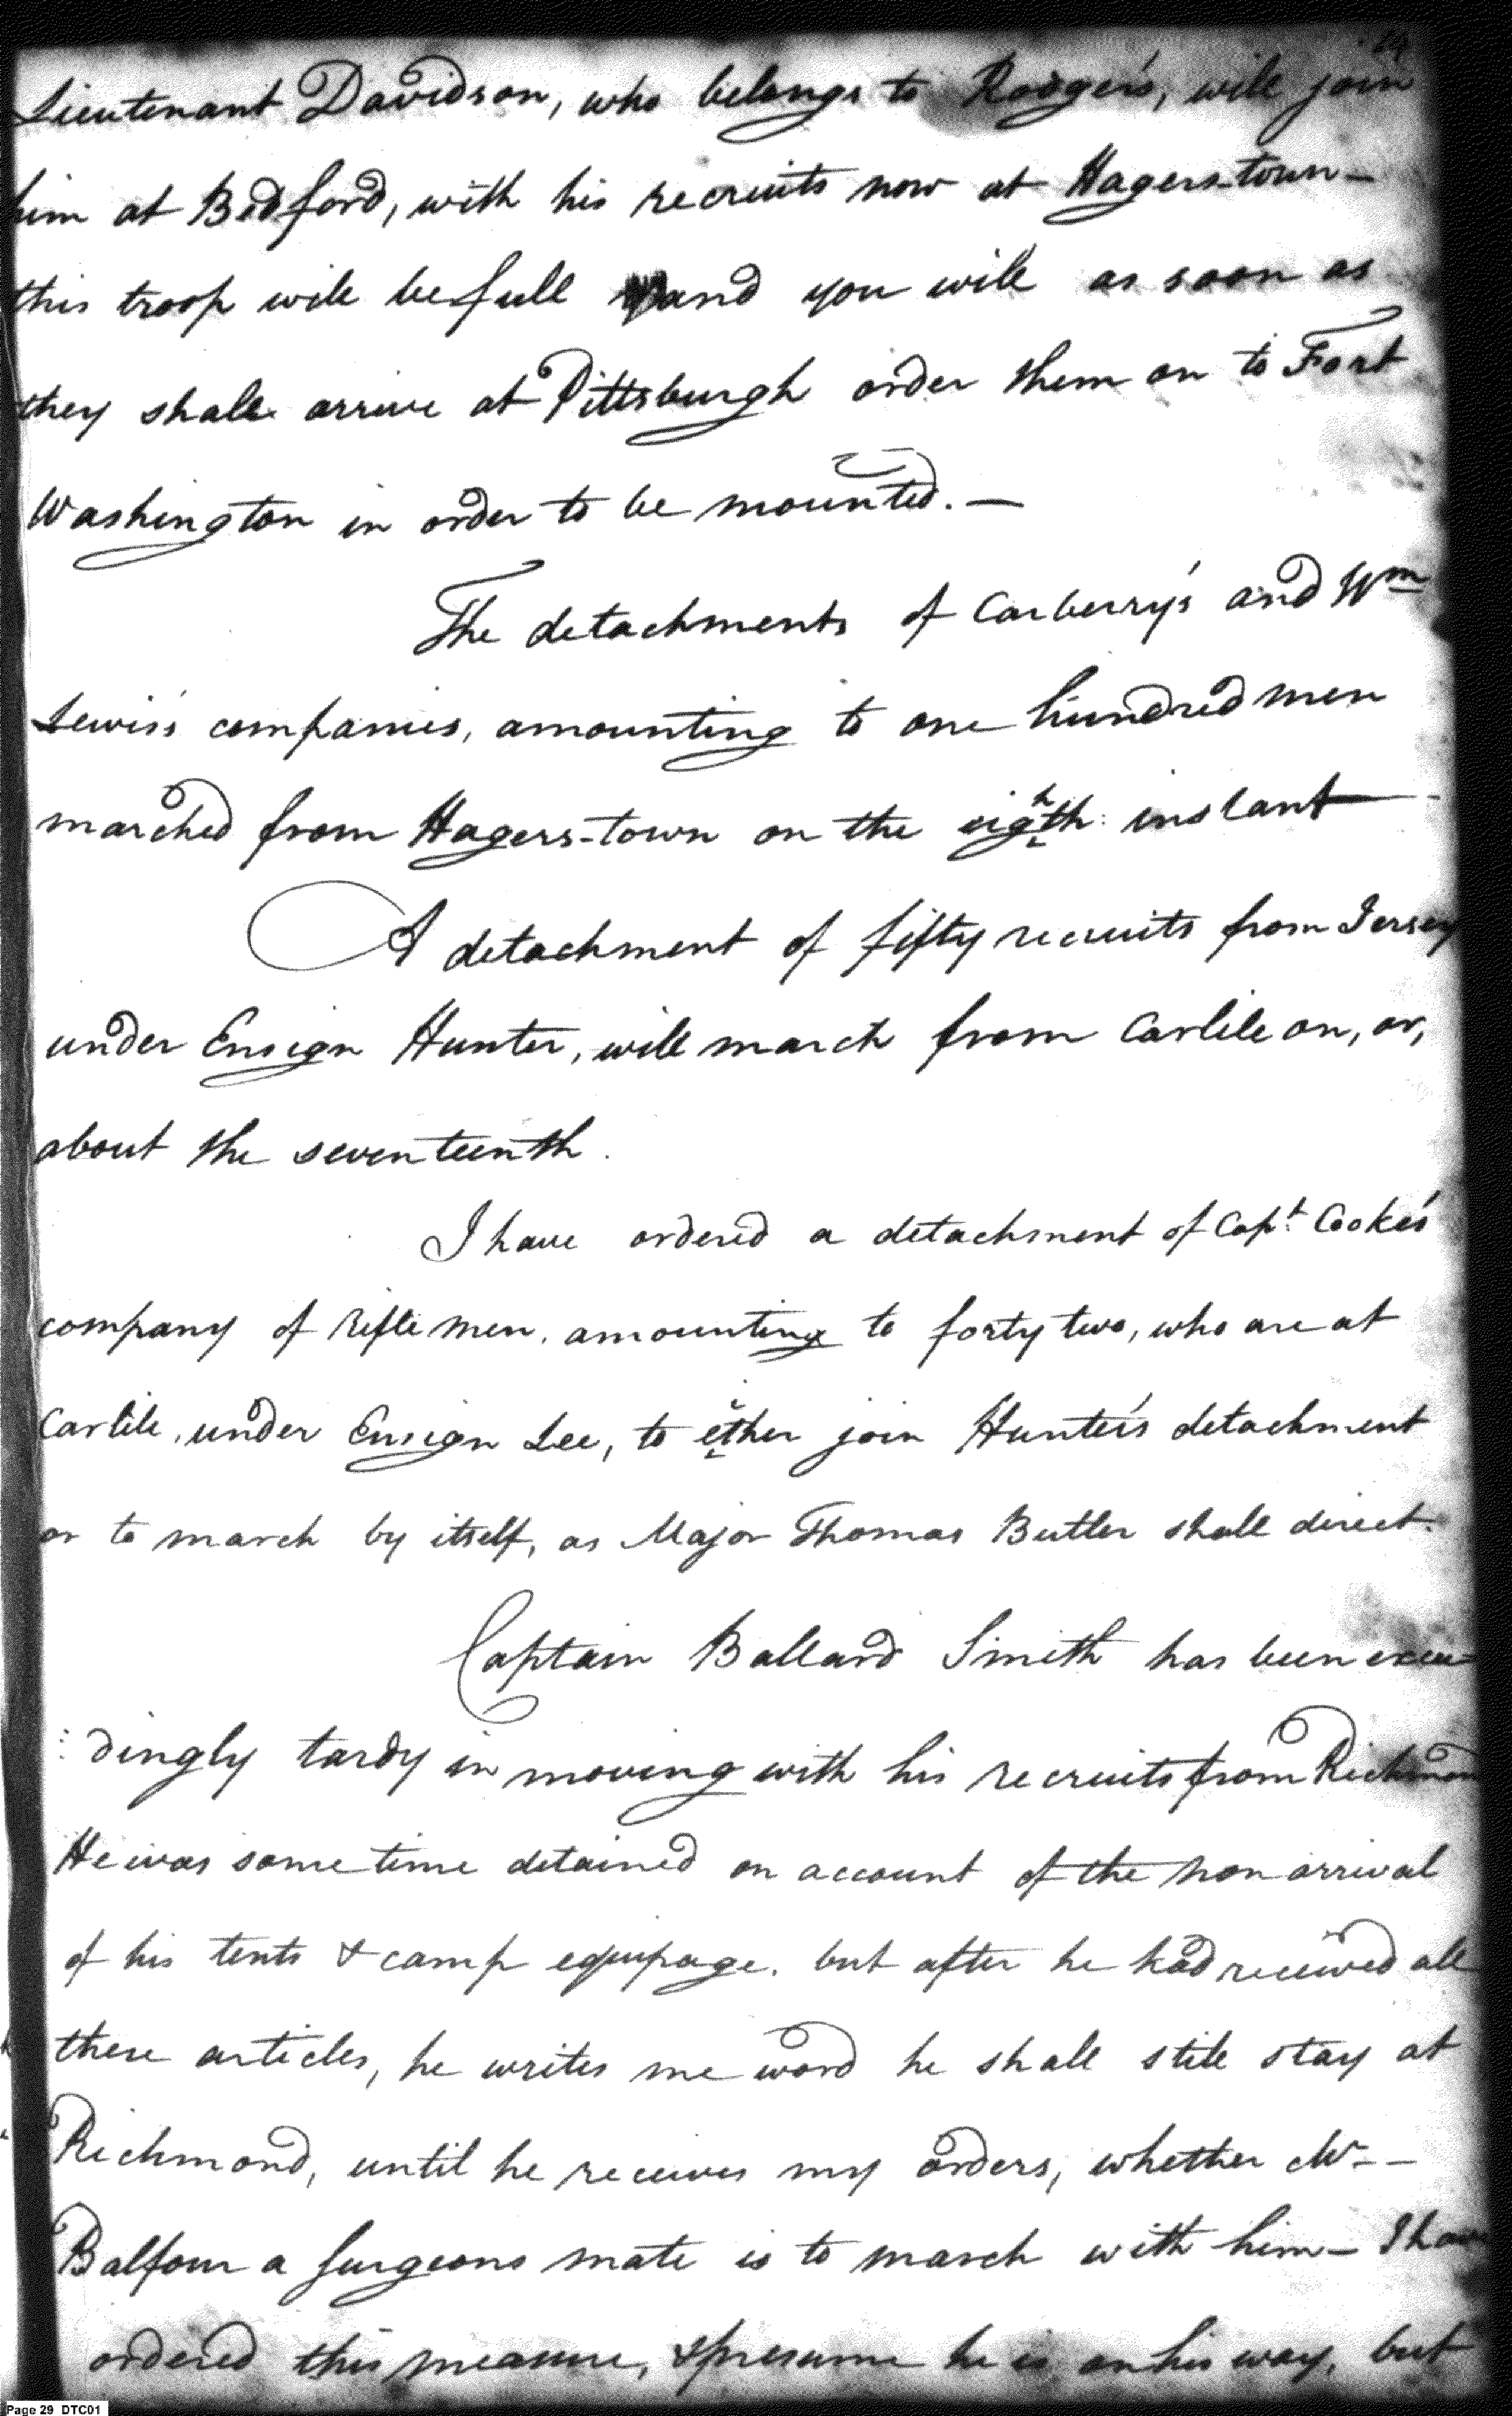 Lieutenant Davidson, who belongs to Rodgers, will join
him at Bedford, with his recruits now at Hagers-town—
this troop will be full and you will as soon as
they shall arrive at Pittsburgh order them on to Fort
Washington in order to be mounted.—
The detachments of Carberry's and Wm
Lewis's companies, amounting to one hundred men
marched from Hagers-town on the eighth instant—
A detachment of fifty recruits from Jersey
under Ensign Hunter, will march from Carlile on, or,
about the seventeenth.
I have ordered a detachment of Capt. Cooke's
company of Rifle men, amounting to forty two, who are at
Carlile, under Ensign Lee, to either join Hunter's detachment
or to march by itself, as Major Thomas Butler shall direct.
Captain Ballard Smith has been excee=
:dingly tardy in moving with his recruits from Richmond
He was some time detained on account of the non arrival
of his tents & camp equipage. but after he had received all
these articles, he writes me word he shall still stay at
Richmond, until he receives my orders, whether Mr--
Balfour a surgeons mate is to march with him— I have
ordered this measure, & presume he is on his way, but
Page 29 DTC01